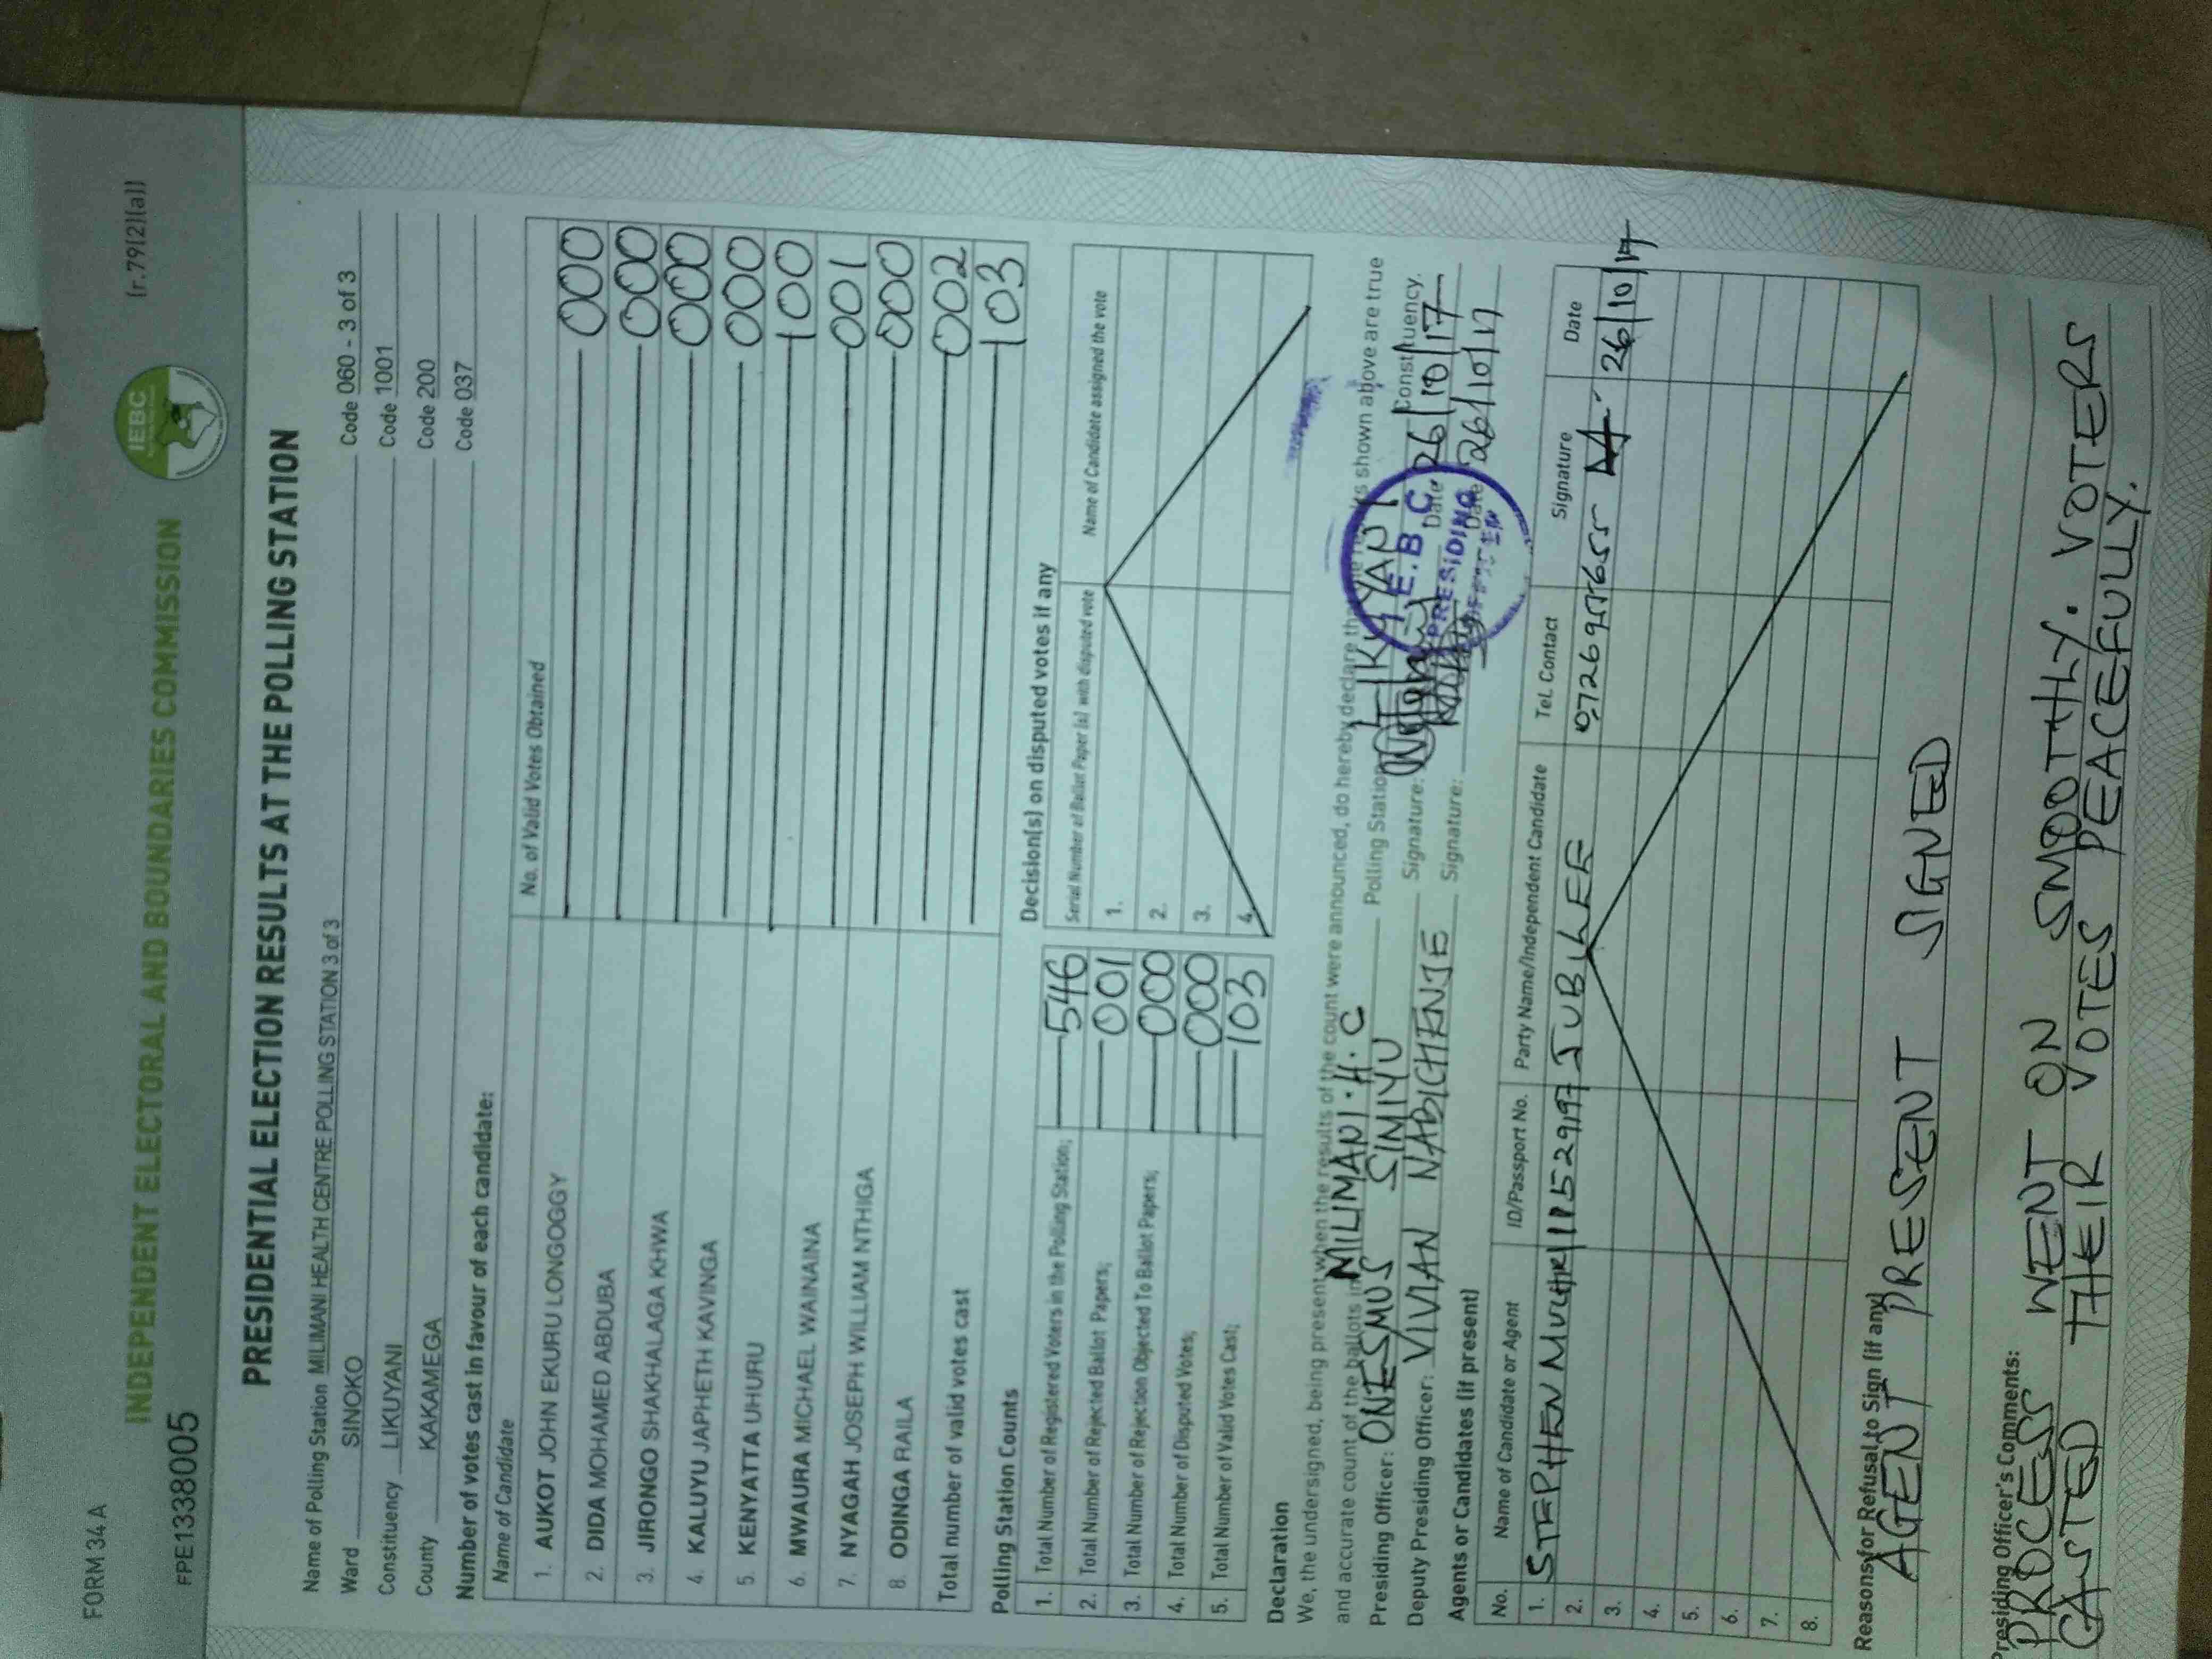 FORM 34 A
(r.79(2)(a))
IEBC
INDEPENDENT ELECTORAL AND BOUNDARIES COMMISSION
FPE1338005
PRESIDENTIAL ELECTION RESULTS AT THE POLLING STATION
Name of Polling Station MILIMANI HEALTH CENTRE POLLING STATION 3 of 3 Code 060 - 3 of 3
Ward SINOKO Code 1001
Constituency LIKUYANI Code 200
County KAKAMEGA Code 037
Number of votes cast in favour of each candidate:
Name of Candidate No. of Valid Votes Obtained
1. AUKOT JOHN EKURU LONGOGGY 000
2. DIDA MOHAMED ABDUBA 000
3. JIRONGO SHAKHALAGA KHWA 000
4. KALUYU JAPHETH KAVINGA 000
5. KENYATTA UHURU 100
6. MWAURA MICHAEL WAINAINA 001
7. NYAGAH JOSEPH WILLIAM NTHIGA 000
8. ODINGA RAILA 002
Total number of valid votes cast 103
Polling Station Counts
1. Total Number of Registered Voters in the Polling Station; 546
2. Total Number of Rejected Ballot Papers; 001
3. Total Number of Rejection Objected To Ballot Papers; 000
4. Total Number of Disputed Votes; 000
5. Total Number of Valid Votes Cast; 103
Decision(s) on disputed votes if any
Serial Number of Ballot Paper (s) with disputed vote Name of Candidate assigned the vote
1.
2.
3.
4.
Declaration
We, the undersigned, being present when the results of the count were announced, do hereby declare that the results shown above are true
and accurate count of the ballots in MILIMANI . H . C Polling Station LIKUYANI Constituency.
Presiding Officer: ONESMUS SIMIYU Signature: Date 26/10/17
Deputy Presiding Officer: VIVIAN NABICHENJE Signature: Date 26/10/17
I.E.B.C
PRESIDING
OFFICER
Agents or Candidates (if present)
No. Name of Candidate or Agent ID/Passport No. Party Name/Independent Candidate Tel. Contact Signature Date
1. STEPHEN 11529197 JUBILEE 26/10/17
2.
3.
4.
5.
6.
7.
8.
Reasons for Refusal to Sign (if any)
AGENT PRESENT SIGNED
Presiding Officer's Comments:
PROCESS WENT ON SMOOTHLY. VOTERS
CASTED THEIR VOTES PEACEFULLY.